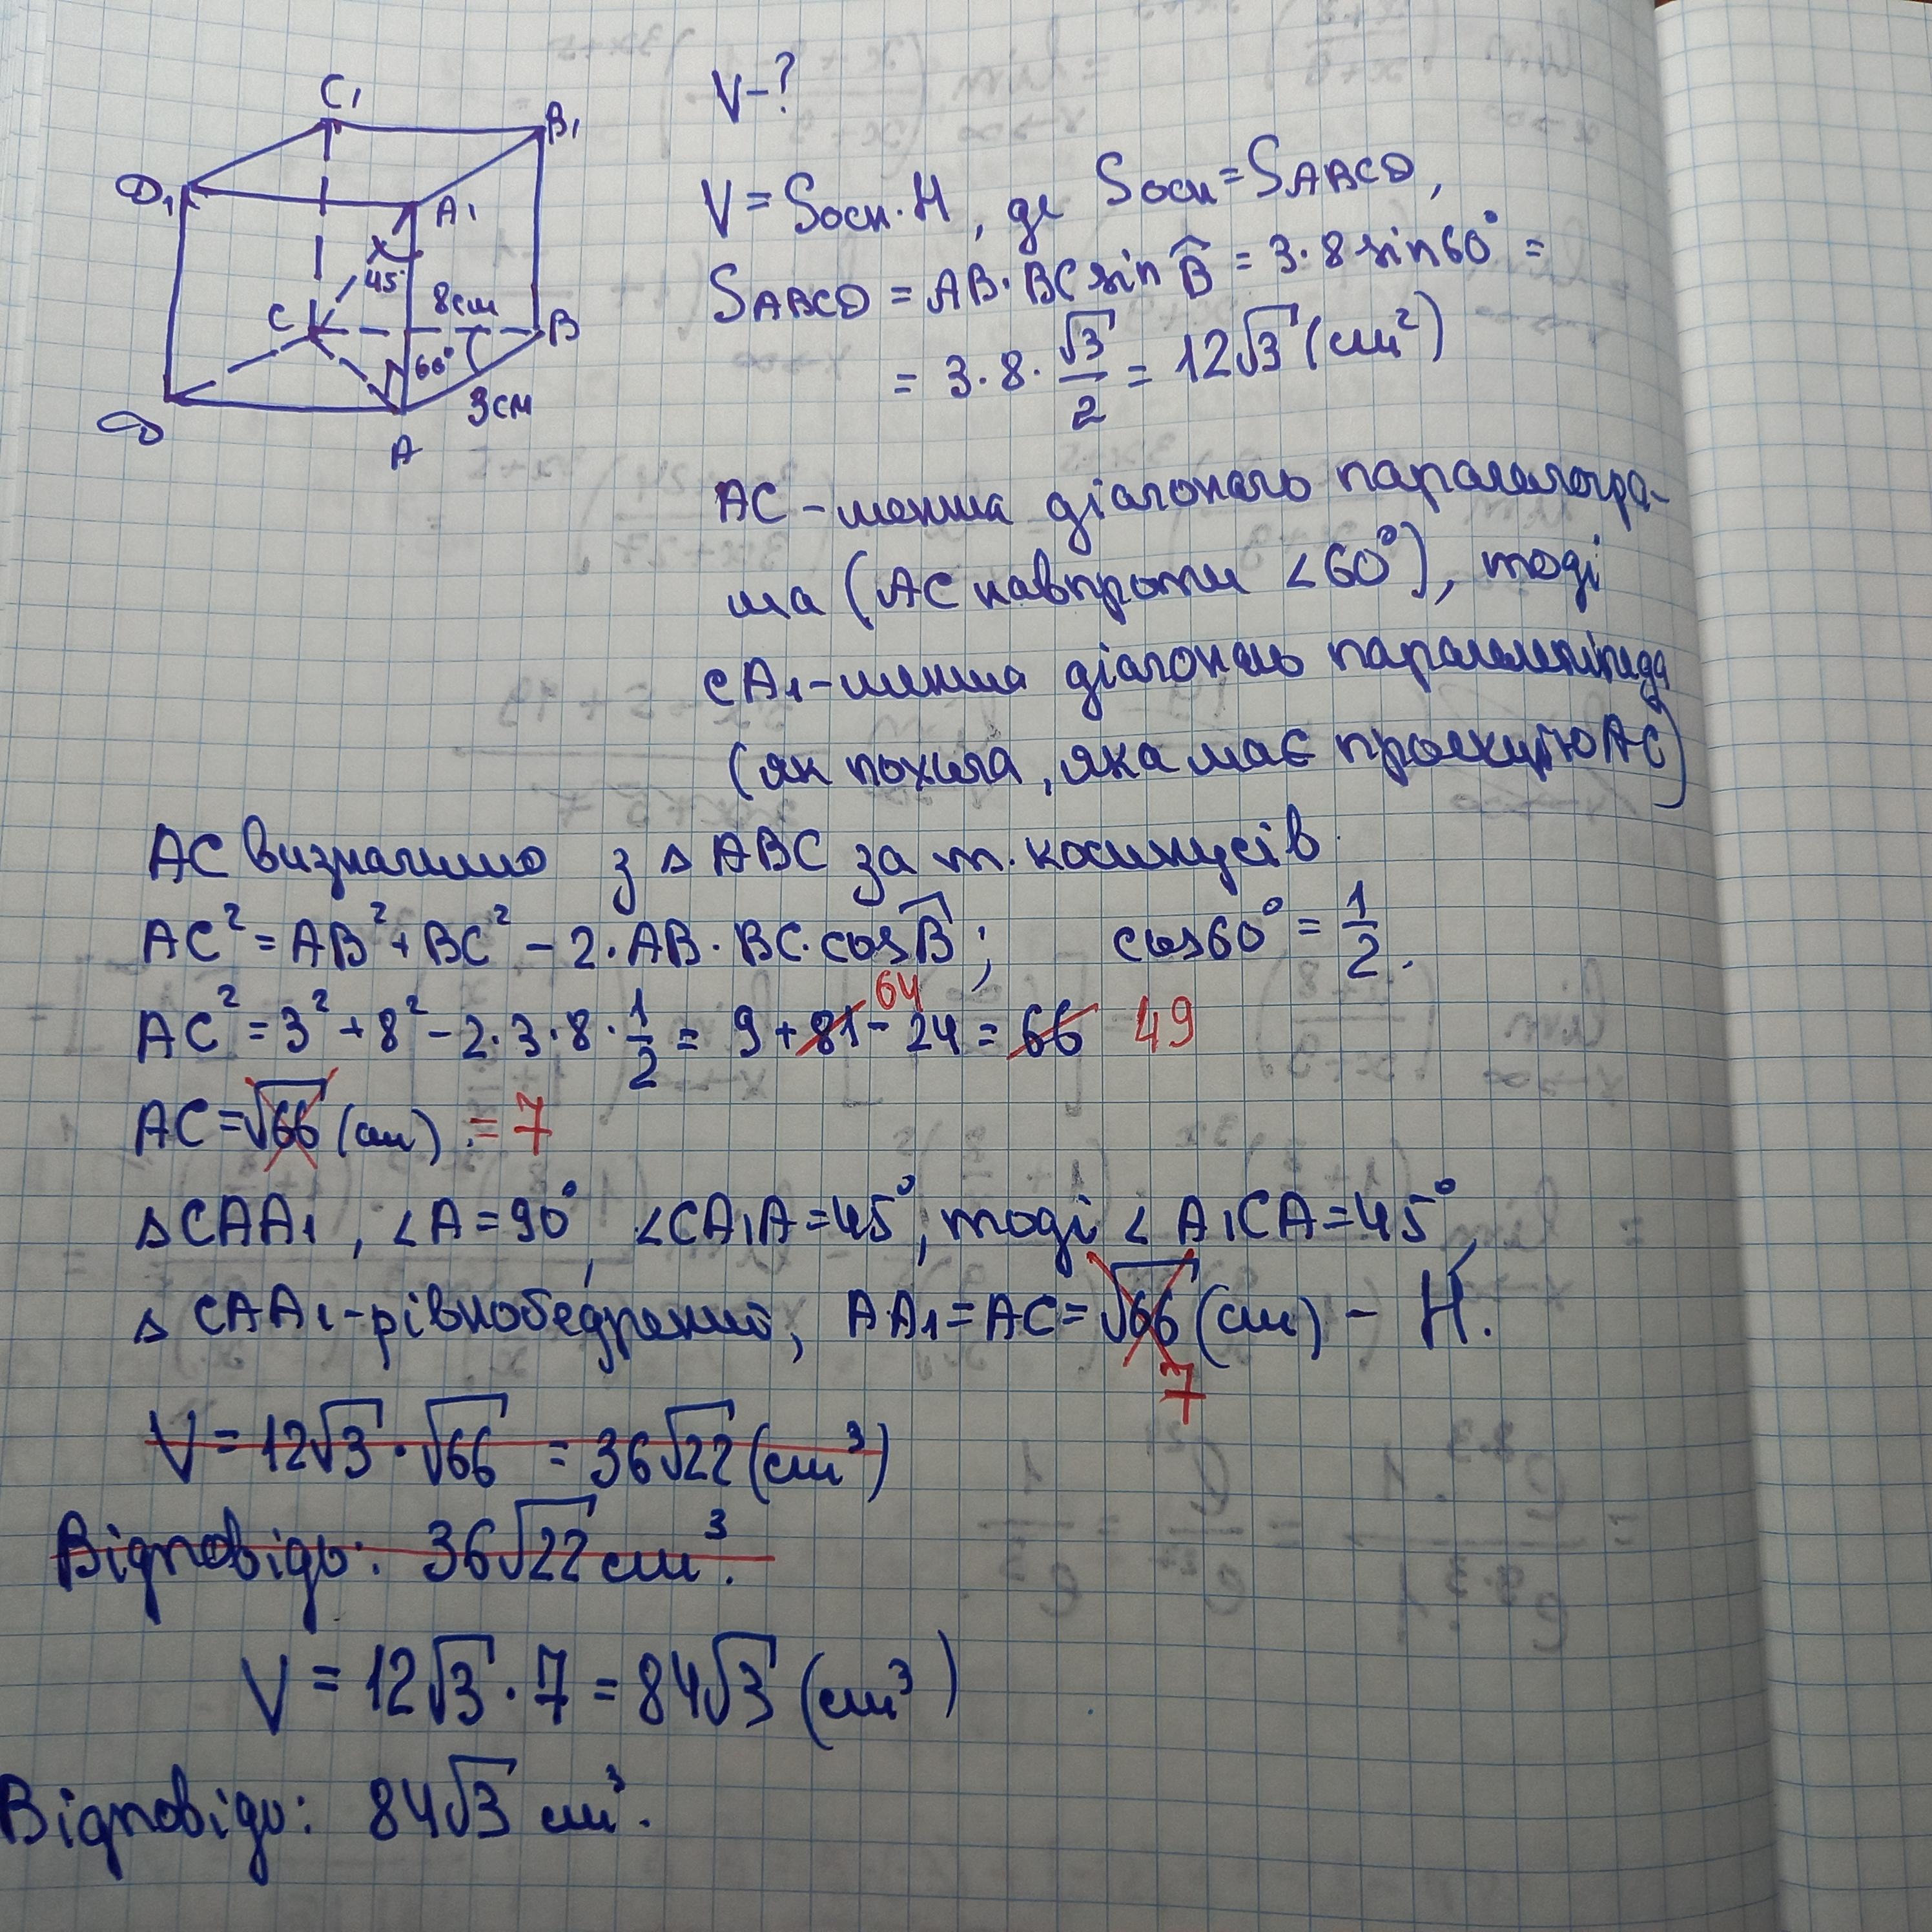 C₁
B₁
D₁
A₁
45°
8см
C
B
60°
3см
D
A
V-?
V = Sосн·H, де Sосн = SABCD,
SABCD = AB·BC sin B̂ = 3·8 sin60° =
= 3·8·√3/2 = 12√3 (см²)
AC – менша діагональ паралелогра-
ма (AC навпроти <60°), тоді
CA₁ – менша діагональ паралелепіпеда
(як похила, яка має проекцію AC)
AC визначимо з △ ABC за т. косинусів.
AC² = AB² + BC² – 2·AB·BC·cos B̂; cos60° = 1/2.
64
AC² = 3² + 8² – 2·3·8·1/2 = 9 + 81 – 24 = 66 49
AC = √66 (см). = 7
△ CAA₁, <A = 90°, <CA₁A = 45°, тоді < A₁CA = 45°,
△ CAA₁ – рівнобедрений, AA₁ = AC = √66 (см) – H.
7
V = 12√3 · √66 = 36√22 (см³)
Відповідь: 36√22 см³.
V = 12√3 · 7 = 84√3 (см³)
Відповідь: 84√3 см³.